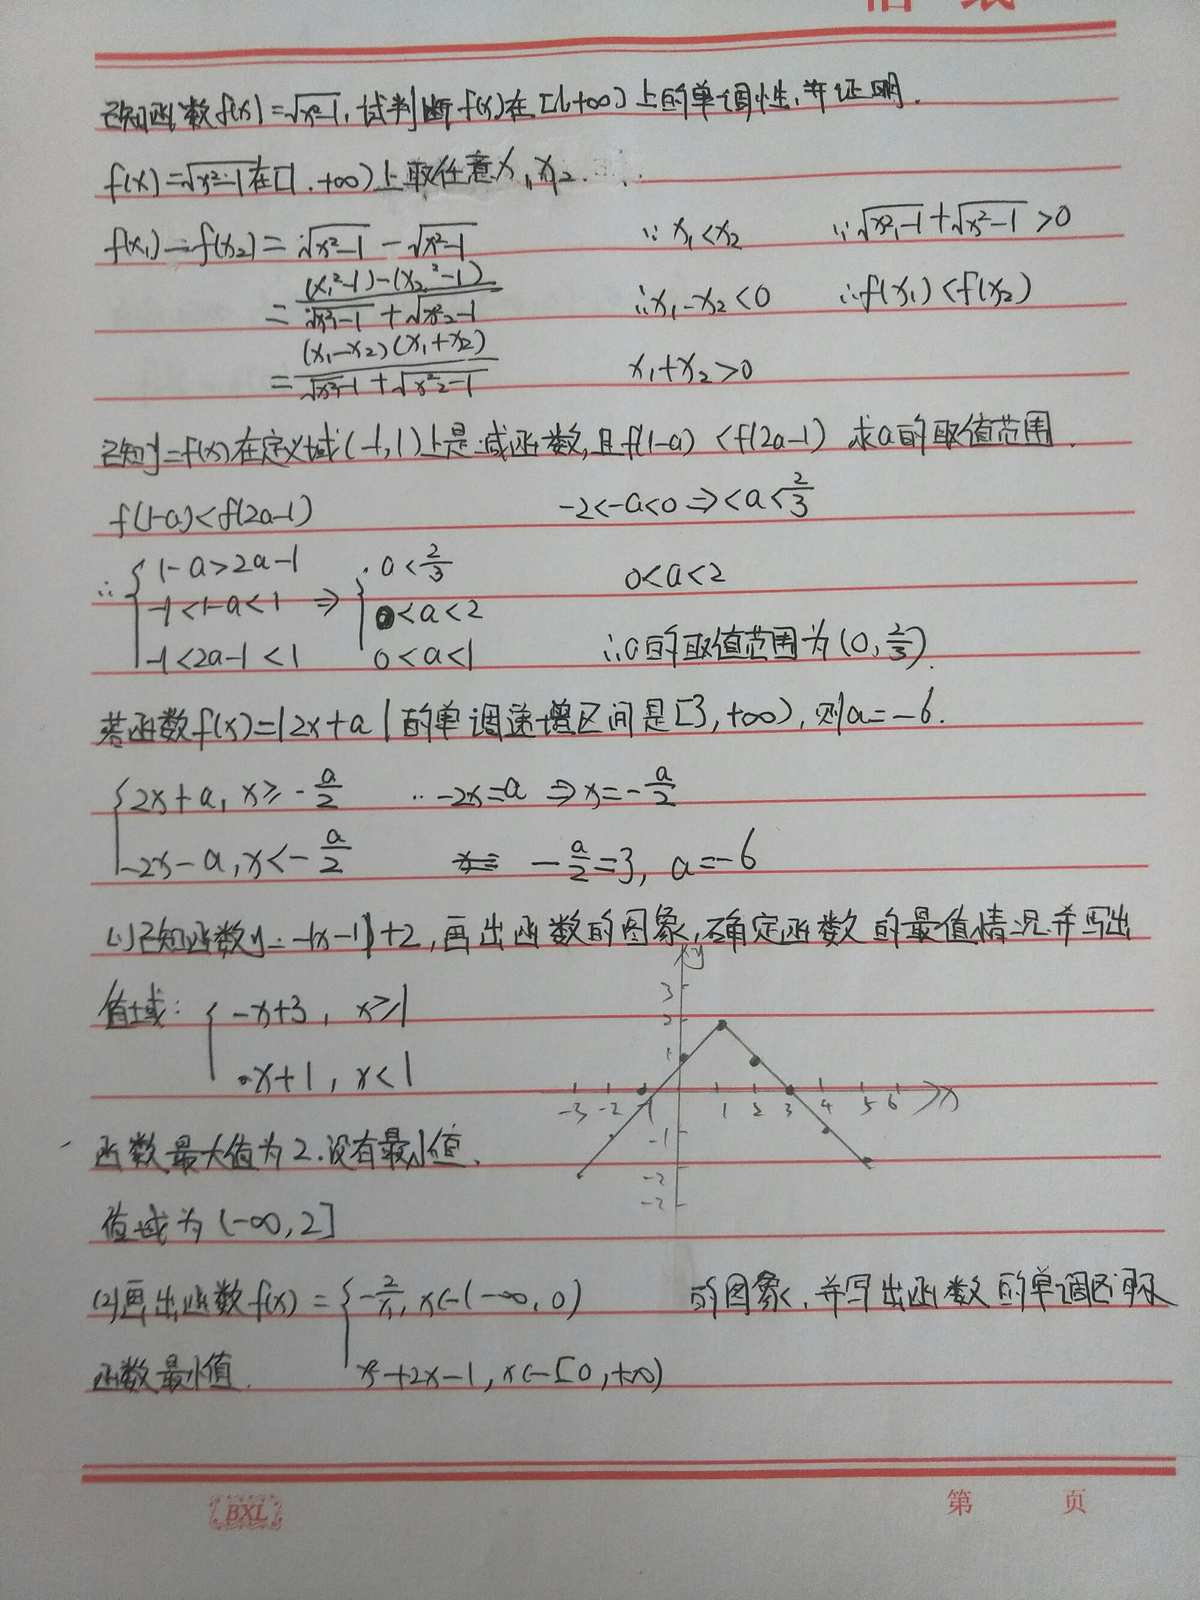 信 纸
已知函数f(x)=√x²-1, 试判断f(x)在[1,+∞)上的单调性,并证明.
f(x)=√x²-1在[1,+∞)上取任意x₁x₂
f(x₁)-f(x₂)=√x²-1-√x²-1 ∵x₁<x₂ ∵√x²₁-1+√x²-1>0
=(x₁²-1)-(x₂²-1)/√x²-1+√x²₂-1 ∴x₁-x₂<0 ∴f(x₁)<f(x₂)
=(x₁-x₂)(x₁+x₂)/√x²-1+√x²₂-1 x₁+x₂>0
已知y=f(x)在定义域(-1,1)上是减函数,且f(1-a)<f(2a-1) 求a的取值范围.
f(1-a)<f(2a-1) -2<-a<0⇒<a<2/3
∴{1-a>2a-1 a<2/3 0<a<2
-1<1-a<1 ⇒ 0<a<2
-1<2a-1<1 0<a<1 ∴a的取值范围为(0,2/3).
若函数f(x)=|2x+a|的单调递增区间是[3,+∞),则a=-6.
{2x+a,x≥-a/2 ∵-2x=a⇒x=-a/2
-2x-a,x<-a/2 -a/2=3, a=-6
(1)已知函数y=-|x-1|+2,画出函数的图象,确定函数的最值情况并写出
值域: {-x+3, x≥1
x+1, x<1
y
3
2
1
-3 -2 -1 1 2 3 4 5 6 x
-1
-2
函数最大值为2.没有最小值.
值域为(-∞,2]
(2)画出函数f(x)={-2/x,x∈(-∞,0) 的图象,并写出函数的单调区间及
函数最小值. x²+2x-1,x∈[0,+∞)
BXL
第 页